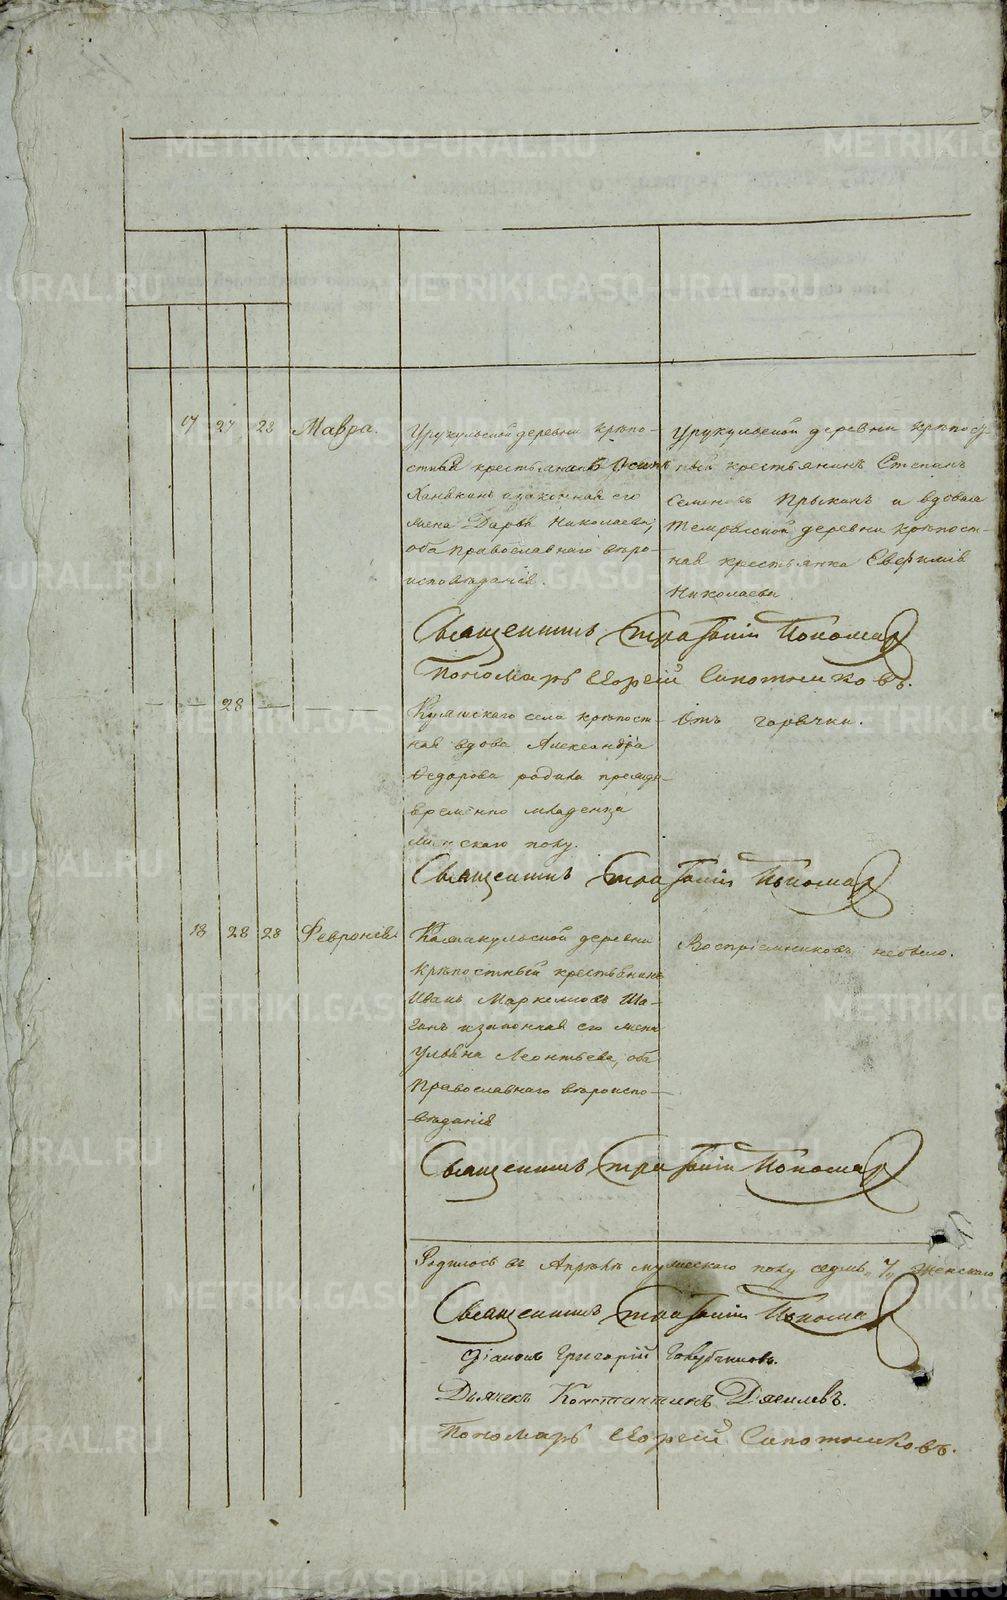 17 27 28 Мавра.
Урукульской деревни крѣпо-
стный крестьянинъ Осипъ
Ханжинъ и законная его
жена Дарья Николаева,
оба православнаго вѣро-
исповѣданія.
Урукульской деревни крѣпост-
ный крестьянинъ Степанъ
Семеновъ и вдовая
деревни крѣпост-
ная крестьянка Евфимія
Николаева
Священникъ Пономар
Пономарь Георгій Сапожниковъ.
28
села крѣпост-
ная вдова Александра
Ѳедорова родила прежде-
временно младенца
женскаго полу.
Отъ горячки.
Священникъ Пономар
18 28 28 Февронія
деревни
крѣпостный крестьянинъ
Иванъ Маркеловъ Ша-
и законная его жена
Ульяна Леонтьева, оба
православнаго вѣроиспо-
вѣданія
Воспріемниковъ небыло.
Священникъ Пономар
Родилось въ Апрѣлѣ мужескаго полу семь „7„ женскаго
Священникъ Пономар
Діаконъ Григорій
Дьячекъ Константинъ
Пономарь Георгій Сапожниковъ.
METRIKI.GASO-URAL.RU